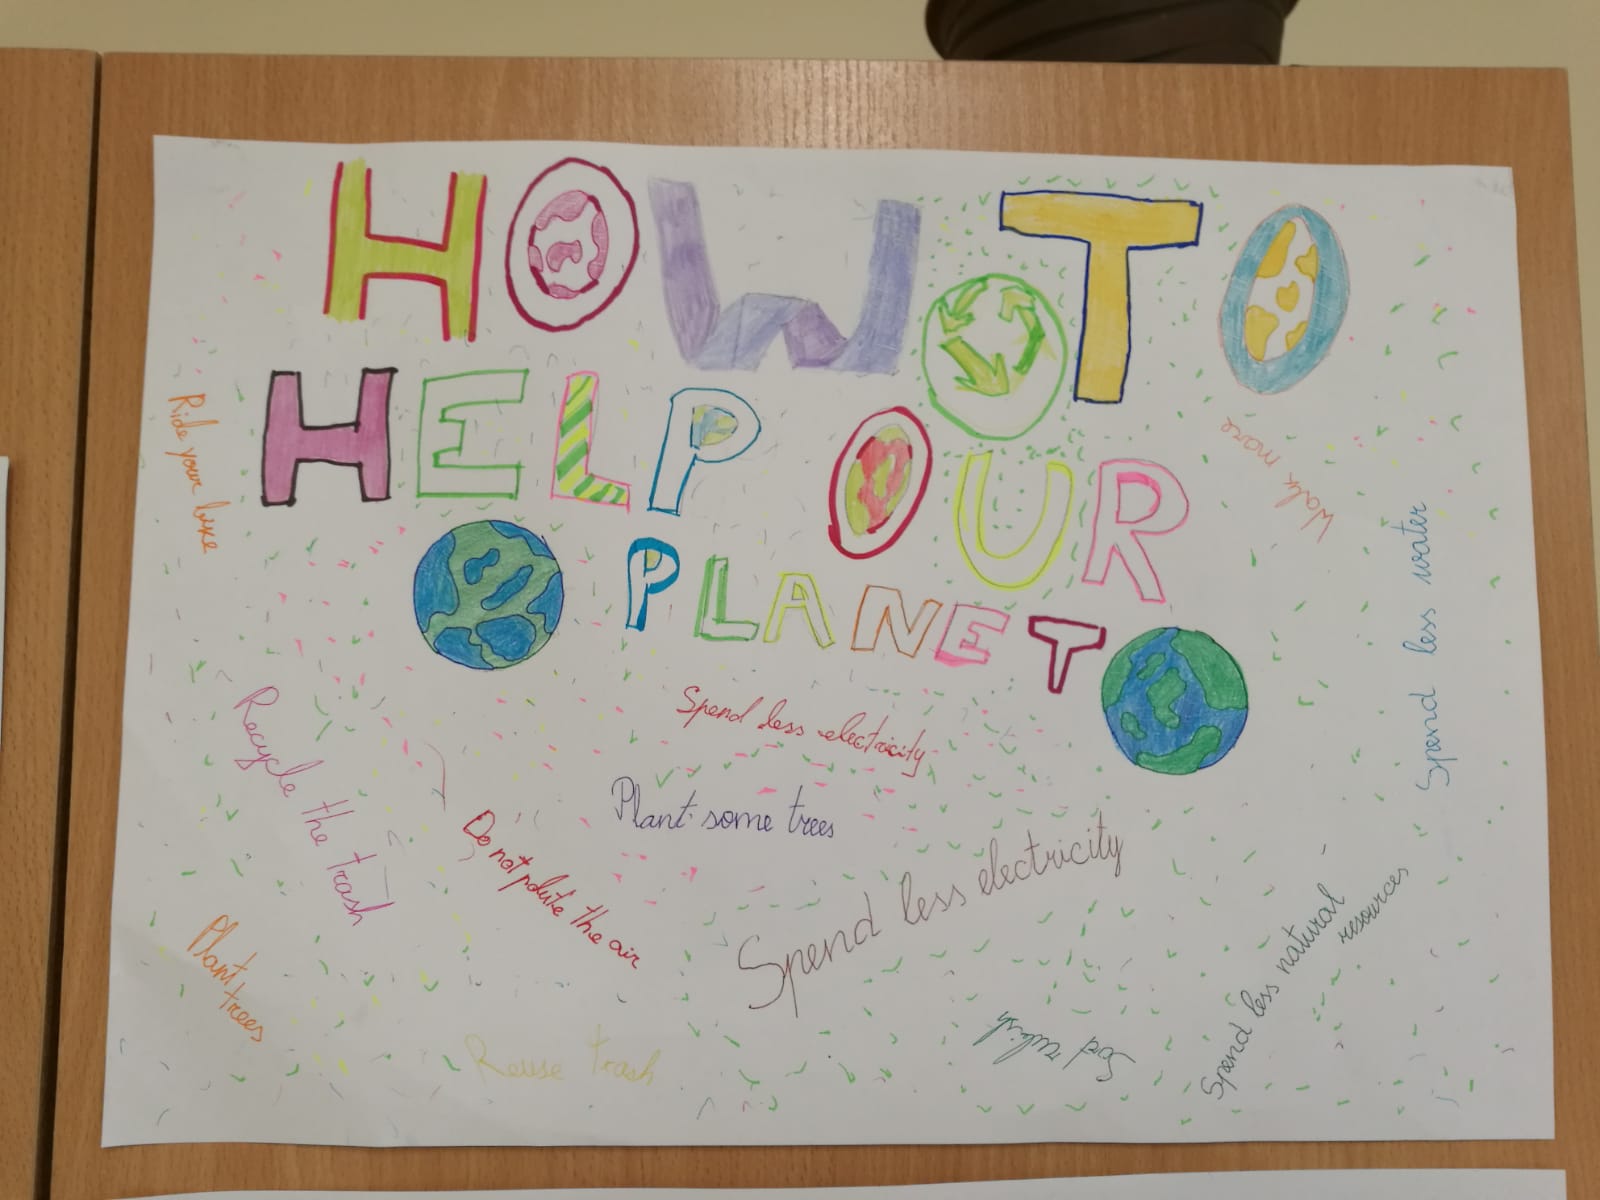 HOW TO
HELP OUR
PLANET
Ride your bike
Walk more
Spend less water
Spend less electricity
Recycle the trash
Plant some trees
Do not polute the air
Spend less electricity
Spend less natural
resources
Plant trees
Reuse trash
Sord rubish